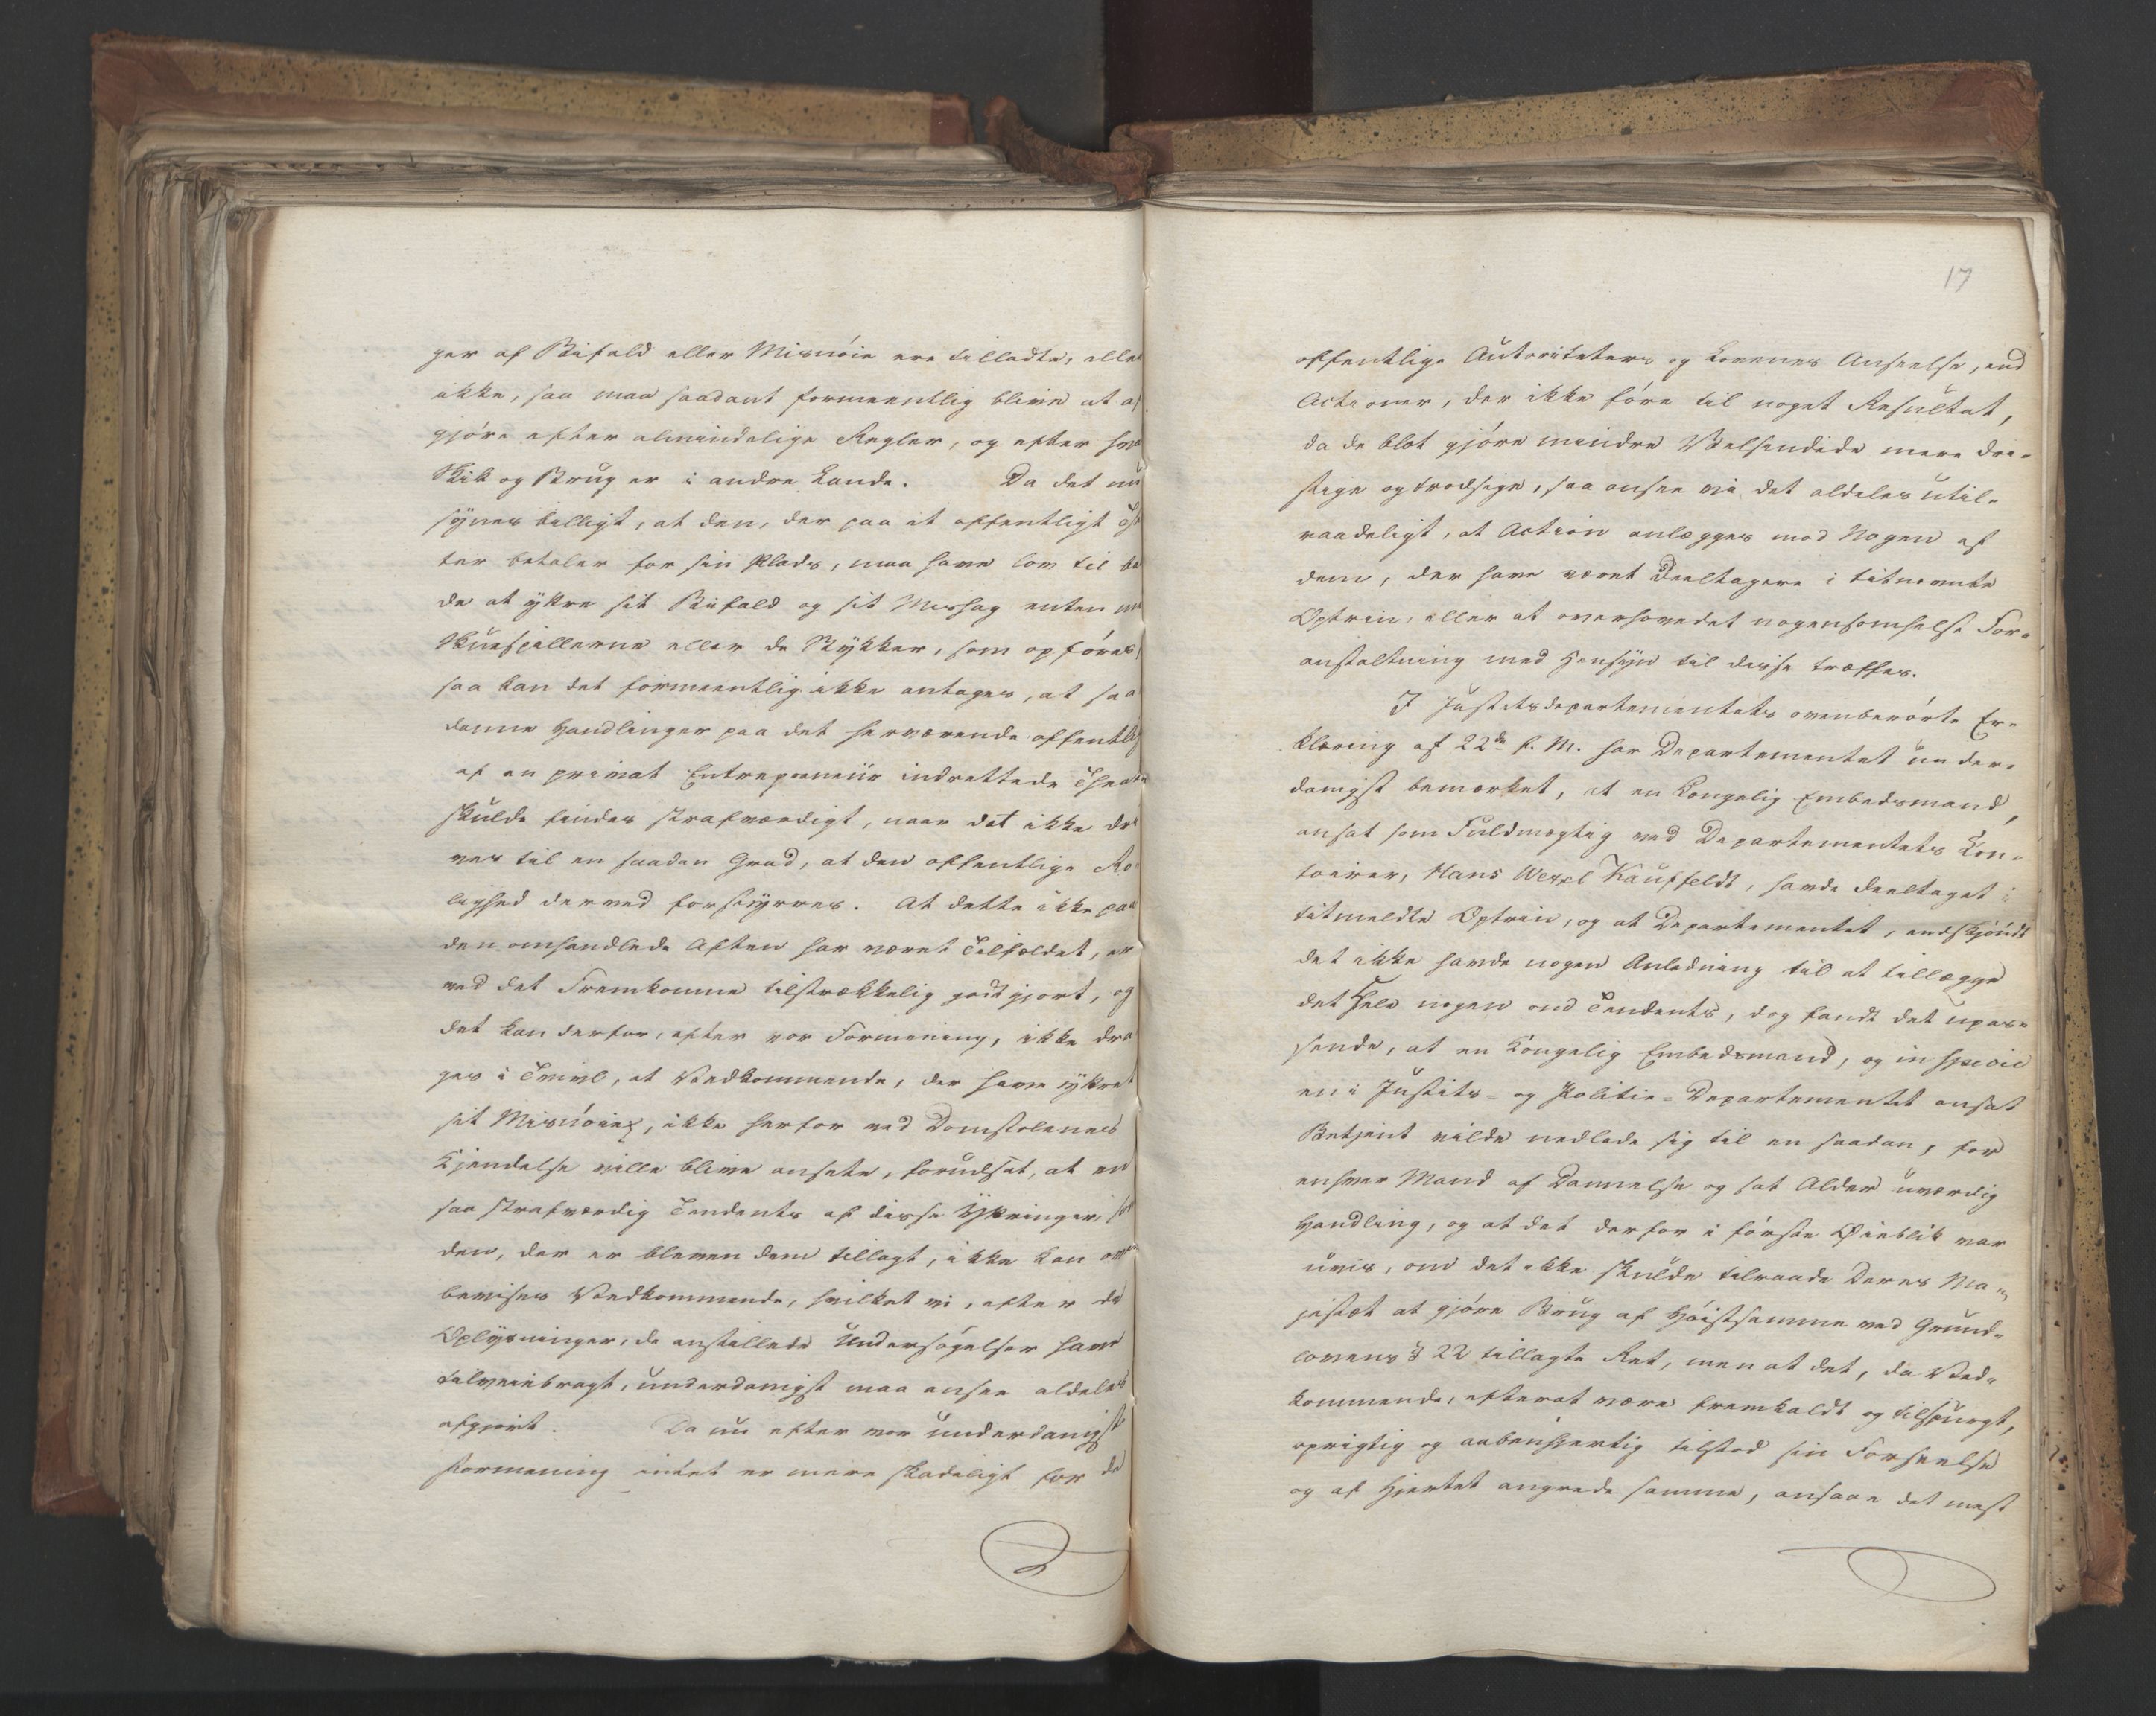 ger af Bifald eller Misnöie ere tilladte, eller
ikke, saa maa saadant formeentlig blive at af
gjöre efter almindelige Regler, og efter hva
Skik og Brug er i andre Lande. Da det nu
synes billigt, at den, der paa et offentligt
ter betaler for sin Plads, maa have lov til baa
de at yttre sit Bifald og sit Mishag enten
Skuespillerne eller de Stykker, som opföres
saa kan det formeentlig ikke antages, at saa
danne Handlinger paa det herværende offentlig
af en privat Entrepreneur indrettede Theater
skulde findes strafværdigt, naar det ikke dri
ves til en saadan Grad, at den offentlige Ro
lighed derved forstyrres. At dette ikke paa
den omhandlede Aften har været Tilfældet, er
ved det Fremkomne tilstrækkelig godtgjort, og
det kan derfor, efter vor Formening, ikke dra
ges i Tvivl, at Vedkommende, der have yttret
sit Misnöie, ikke herfor ved Domstolenes
Kjendelse ville blive ansete, forudsat, at en
saa strafværdig Tendents af disse Yttringer,
den, der er bleven dem tillagt, ikke kan
bevises Vedkommende, hvilket vi, efter de
Oplysninger, de anstillede Undersögelser have
tilveiebragt, underdanigst maa ansee aldeles
afgjort. Da nu efter vor underdanigste
Formening intet er mere skadeligt for de
17
offentlige Autoriteters og Lovenes Anseelse, end
Actioner, der ikke före til noget Resultat,
da de blot gjöre mindre Velsindede mere dri-
stige og trodsige, saa ansee vi det aldeles util-
raadeligt, at Action anlægges mod Nogen af
dem, der have været Deeltagere i titnævnte
Optrin, eller at overhovedet nogensomhelst For-
anstaltning med Hensyn til disse træffes.
I Justitsdepartementets ovenberörte Er-
klæring af 22de f. M. har Departementet under-
danigst bemærket, at en Kongelig Embedsmand,
ansat som Fuldmægtig ved Departementets Con-
toirer, Hans Wexel Kauffeldt, havde deeltaget i
titmeldte Optrin, og at Departementet, endskjöndt
det ikke havde nogen Anledning til at tillægge
det Hele nogen ond Tendents, dog fandt det upas-
sende, at en Kongelig Embedsmand, og in specie
en i Justits- og Politie-Departementet ansat
Betjent vilde nedlade sig til en saadan, for
enhver Mand af Dannelse og sat Alder uværdig
Handling, og at det derfor i förste Öieblik var
uvis, om det ikke skulde tilraade Deres Ma-
jestæt at gjöre Brug af Höistsamme ved Grund-
lovens § 22 tillagte Ret, men at det, da Ved-
kommende, efterat være fremkaldt og tilspurgt,
oprigtig og aabenhjertig tilstod sin Forseelse
og af Hjertet angrede samme, ansaae det mest